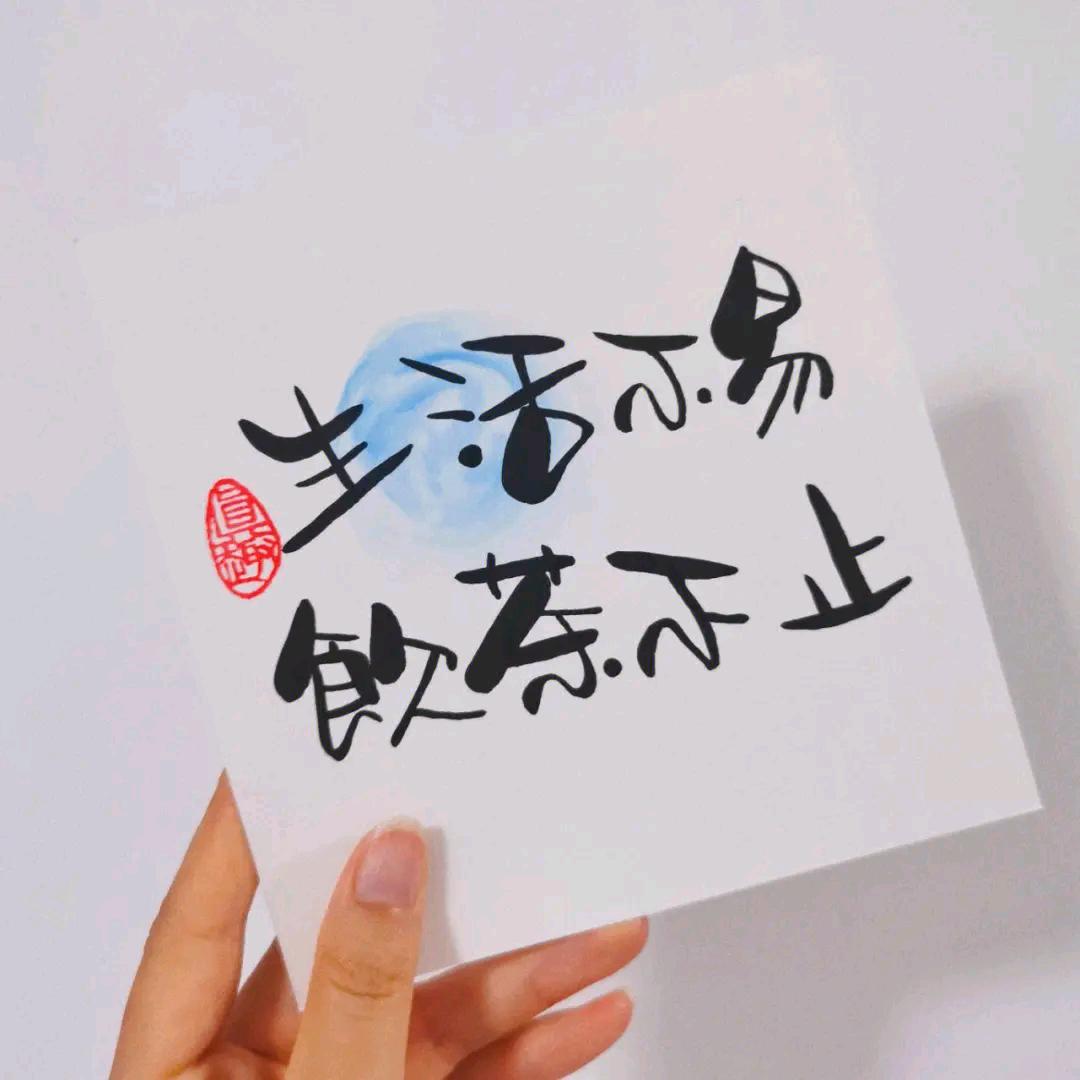 生活不易
飲茶不止